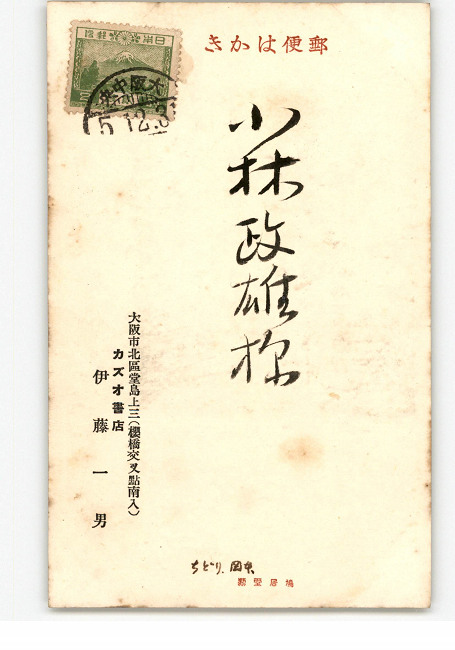 郵便はかき
日本郵便
大阪中央
5.12.3
小林政雄様
大阪市北區堂島上三(櫻橋交叉點南入)
カズオ書店
伊藤一男
ちどり、